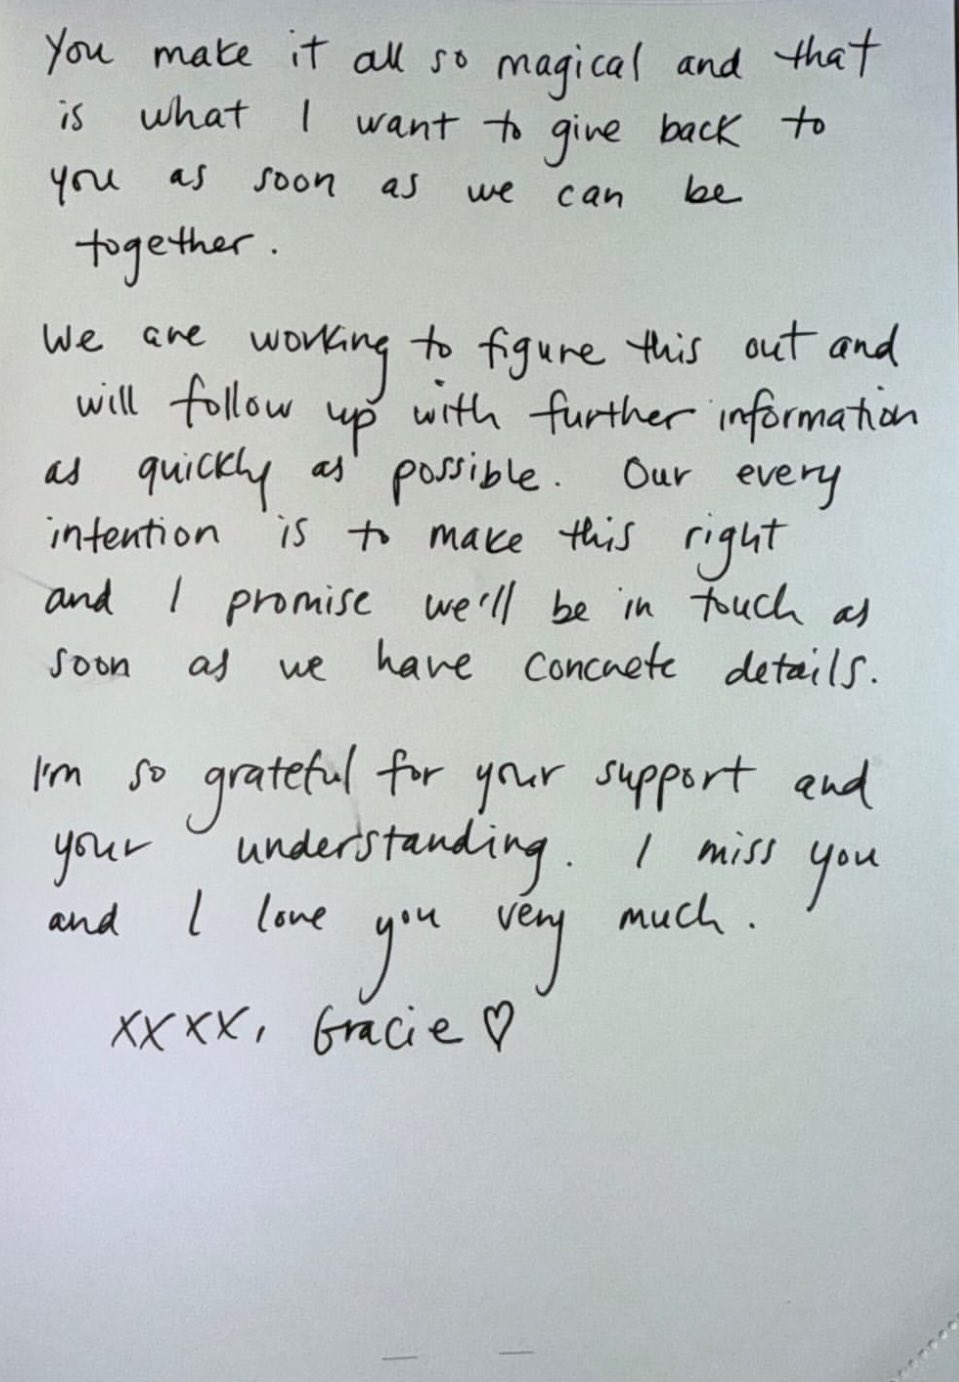 You make it all so magical and that
is what I want to give back to
you as soon as we can be
together.
We are working to figure this out and
will follow up with further information
as quickly as possible. Our every
intention is to make this right
and I promise we'll be in touch as
soon as we have concrete details.
I'm so grateful for your support and
your understanding. I miss you
and I love you very much.
xxxx, Gracie ♡